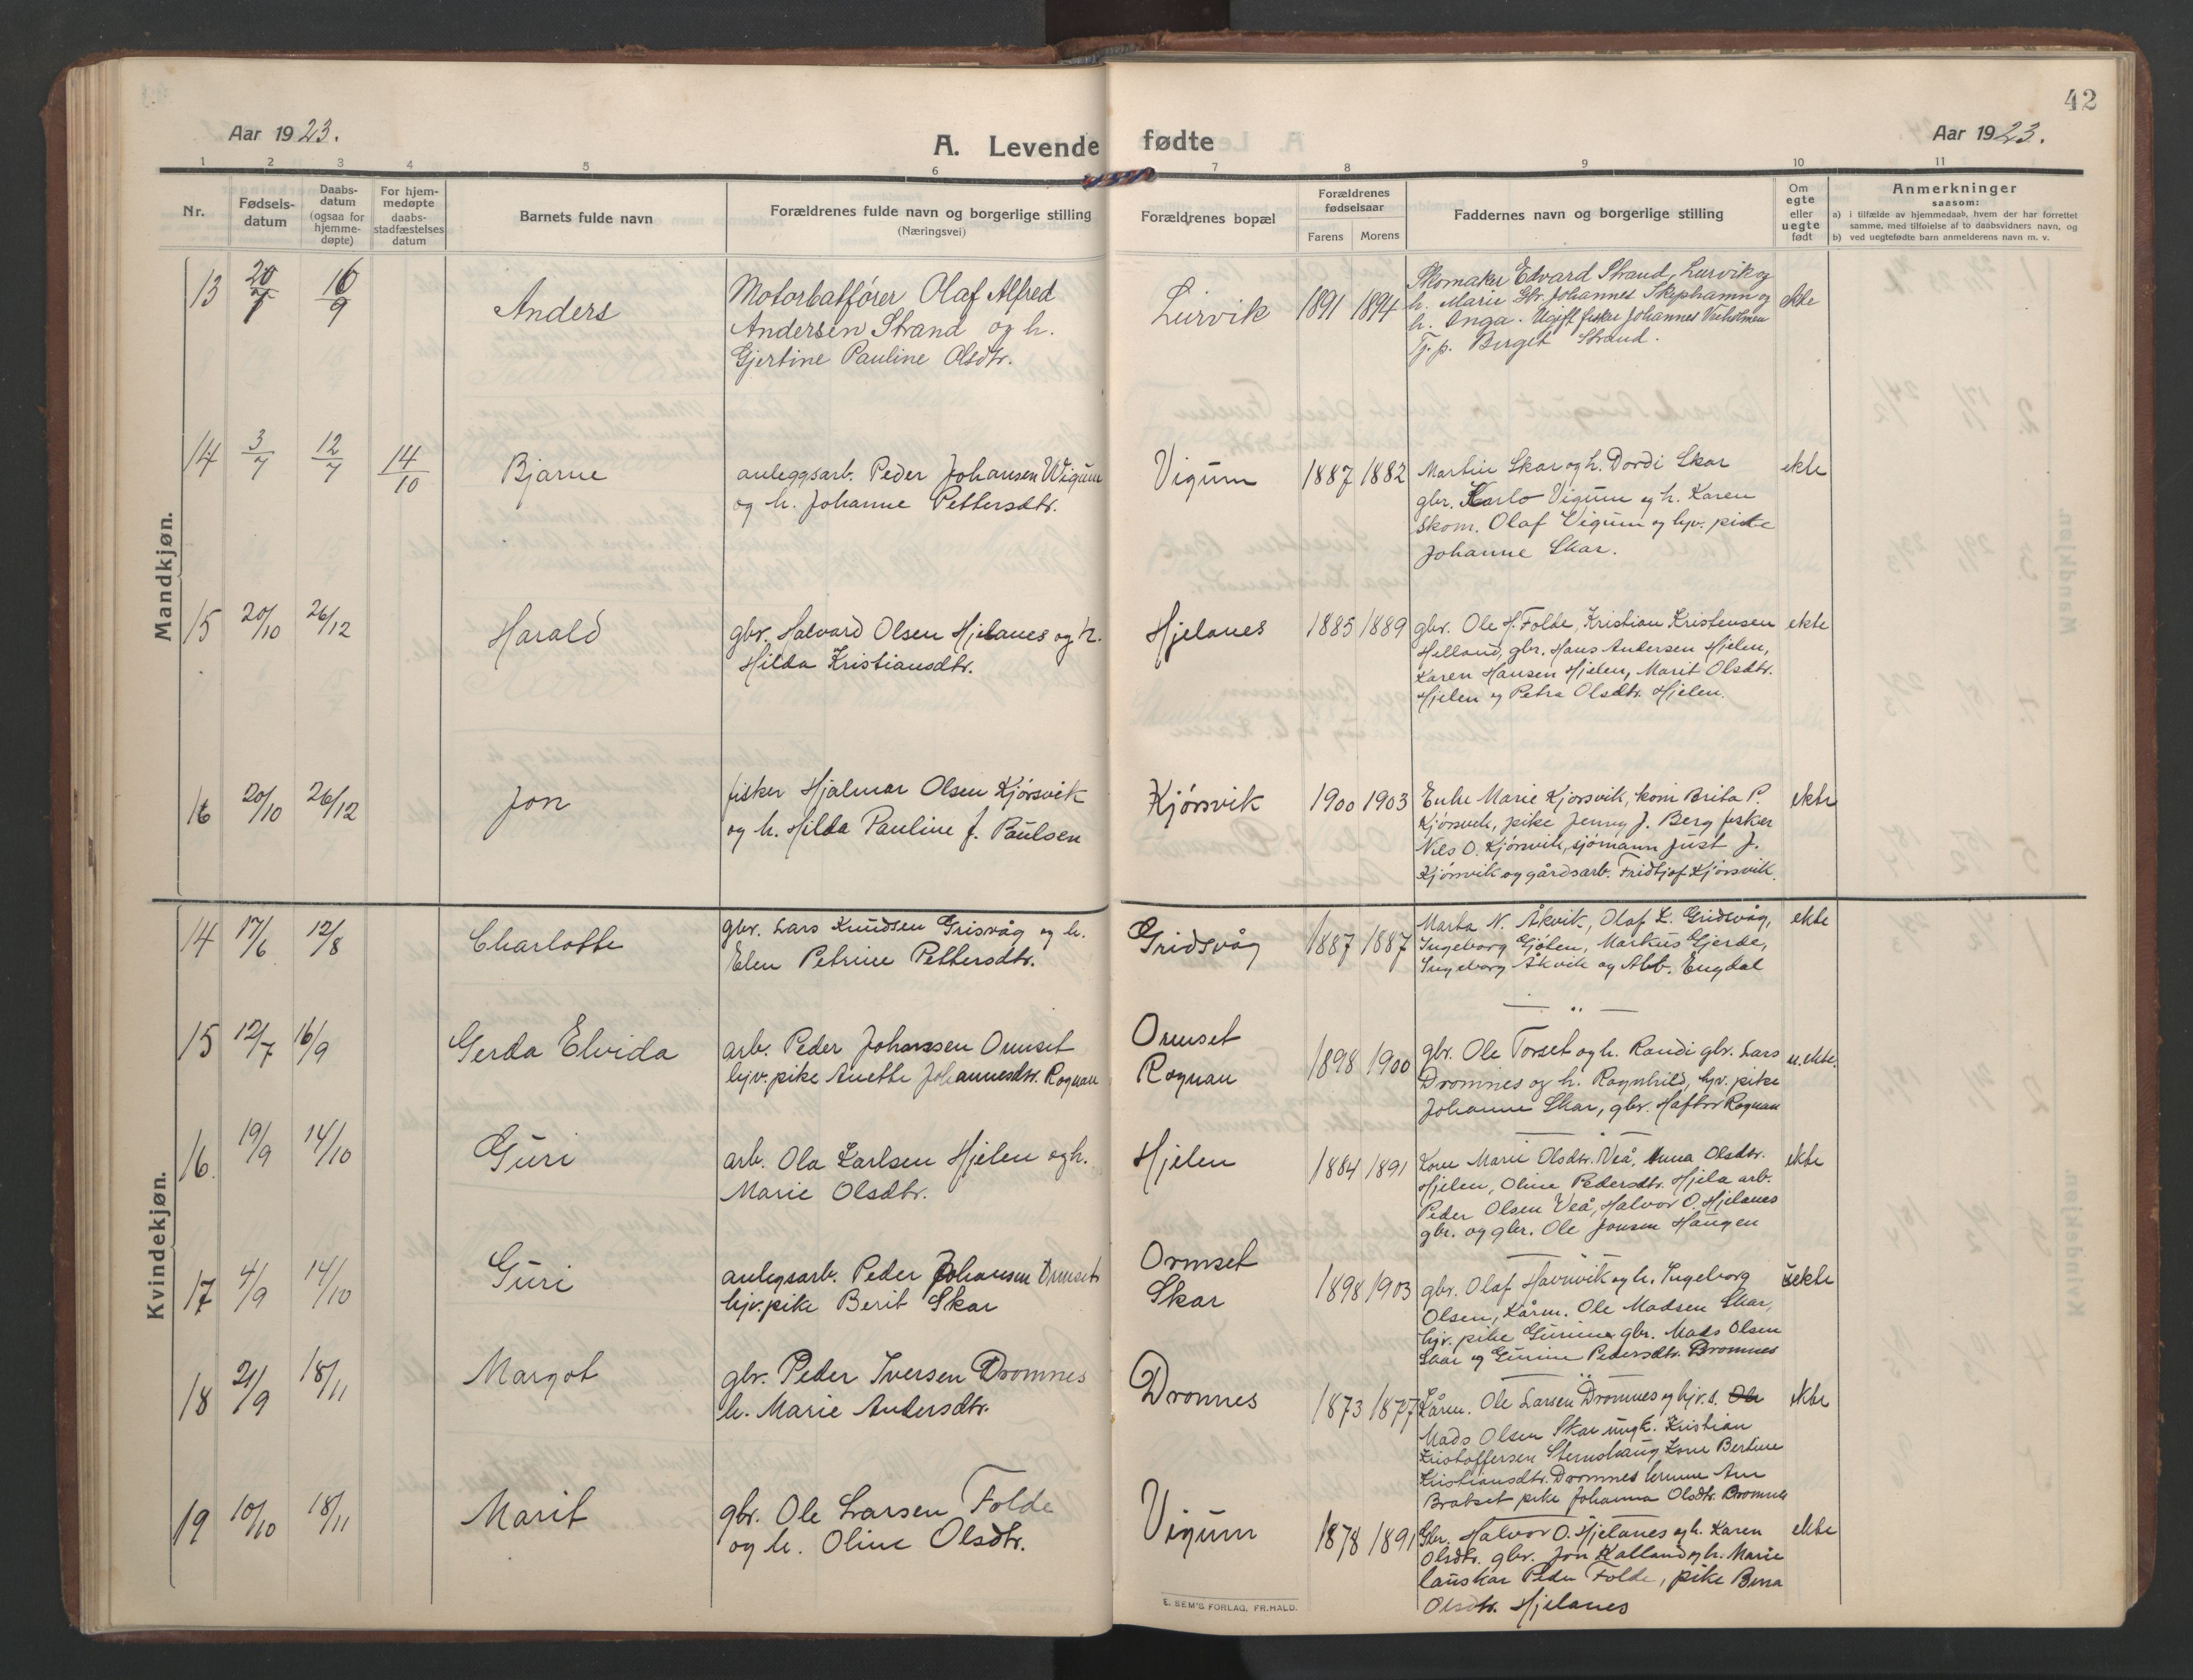 42
Aar 1923.
A. Levende fødte
Aar 1923.
1 2 3 4 5 6 7 8 9 10 11
Nr.
Fødsels-
datum
Daabs-
datum
(ogsaa for
hjemme-
døpte)
For hjem-
medøpte
daabs-
stadfæstelses
datum
Barnets fulde navn
Forældrenes fulde navn og borgerlige stilling
(Næringsvei)
Forældrenes bopæl
Forældrenes
fødselsaar
Farens Morens
Faddernes navn og borgerlige stilling
Om
egte
eller
uegte
født
Anmerkninger
saasom:
a) i tilfælde av hjemmedaab, hvem der har forrettet
samme, med tilføielse af to daabsvidners navn, og
b) ved uegtefødte barn anmelderens navn m. v.
Mandkjøn.
13 20/7 16/9 Anders
Motorbatfører Olaf Alfred
Andersen Strand og h.
Gjertine Pauline Olsdtr.
Lurvik 1891 1894
Skomaker Edvard Strand, Lurvik og
h. Marie Gbr. Johannes Skiphamn og
h. Inga. Ugift fisker Johannes
Tj. p. Berget Strand.
ekte
14 3/7 12/7 14/10 Bjarne
anleggsarb. Peder Johansen Wigum
og h. Johanne Pettersdtr.
Vigum 1887 1882
Martin Skar og h. Dordi Skar
gbr. Karlo Vigum og h. Karen
Skom. Olaf Vigum og hjv. pike
Johanne Skar.
ekte
15 20/10 26/12 Harald
gbr. Halvard Olsen Hjelanes og h.
Hilda Kristiansdtr.
Hjelanes 1885 1889
gbr. Ole H. Folde, Kristian Kristensen
Helland, gbr. Hans Andersen Hjelen,
Karen Hansen Hjelen, Marit Olsdtr.
Hjelen og Petra Olsdtr. Hjelen.
ekte
16 20/10 26/12 Jon
fisker Hjalmar Olsen Kjørsvik
og h. Hilda Pauline J. Paulsen
Kjørsvik 1900 1903
Enke Marie Kjørsvik, kom Brita P.
Kjørsvik, pike Jenny J. Berg fisker
Nils O. Kjørsvik, sjømann Just J.
Kjørsvik og gårdsarb. Fridtjof Kjørsvik.
ekte
Kvindekjøn.
14 17/6 12/8 Charlotte
gbr. Lars Knudsen Grisvåg og h.
Elen Petrine Pettersdtr.
Gridsvåg 1887 1887
Marta N. Åkvik, Olaf L. Gridsvåg,
Ingeborg Gjølen, Markus Gjerde,
Ingeborg Åkvik og Alb. Engdal
ekte
— " —
15 12/7 16/9 Gerda Elvida
arb. Peder Johanssen Ormset
hjv. pike Anette Johannesdtr. Rognan
Ormset
Rognan
1898 1900
gbr. Ole Torset og h. Randi gbr. Lars
Dromnes og h. Ragnhild, hjv. pike
Johanne Skar, gbr. Haftor Rognan
u. ekte.
16. 19/9 14/10 Guri
arb. Ola Karlsen Hjelen og h.
Marie Olsdtr.
Hjelen 1884 1891
Kone Marie Olsdtr. Veå, Anna Olsdtr.
Hjelen, Oline Pedersdtr. Hjela arb.
Peder Olsen Veå, Halvor O. Hjelanes
gbr. og gbr. Ole Jonsen Haugen
ekte
17 4/9 14/10 Guri
anlegsarb. Peder Johansen Ormset
hjv. pike Berit Skar
Ormset
Skar
1898 1903
gbr. Olaf Havnvik og h. Ingeborg
Olsen, Kårm. Ole Madsen Skar,
hjv. pike Gurine gbr. Mads Olsen
Skar og Gurine Pedersdtr. Dromnes
uekte
18 21/9 18/11 Margot
gbr. Peder Iversen Dromnes
h. Marie Andersdtr.
Dromnes 1873 1877
Kårm. Ole Larsen Dromnes og hjv. s. Ole
Mads Olsen Skar ungk. Kristian
Kristoffersen Stenshaug Kone Bertine
Kristiansdtr. Dromnes
pike Johanna Olsdtr. Dromnes
ekte
19 10/10 18/11 Marit
gbr. Ole Larsen Folde
og h. Oline Olsdtr.
Vigum 1878 1891
Gbr. Halvor O. Hjelanes og h. Karen
Olsdtr. gbr. Jon Kalland og h. Marie
Peder Folde, pike
Olsdtr. Hjelanes
ekte
E. SEM'S FORLAG. FR.HALD.